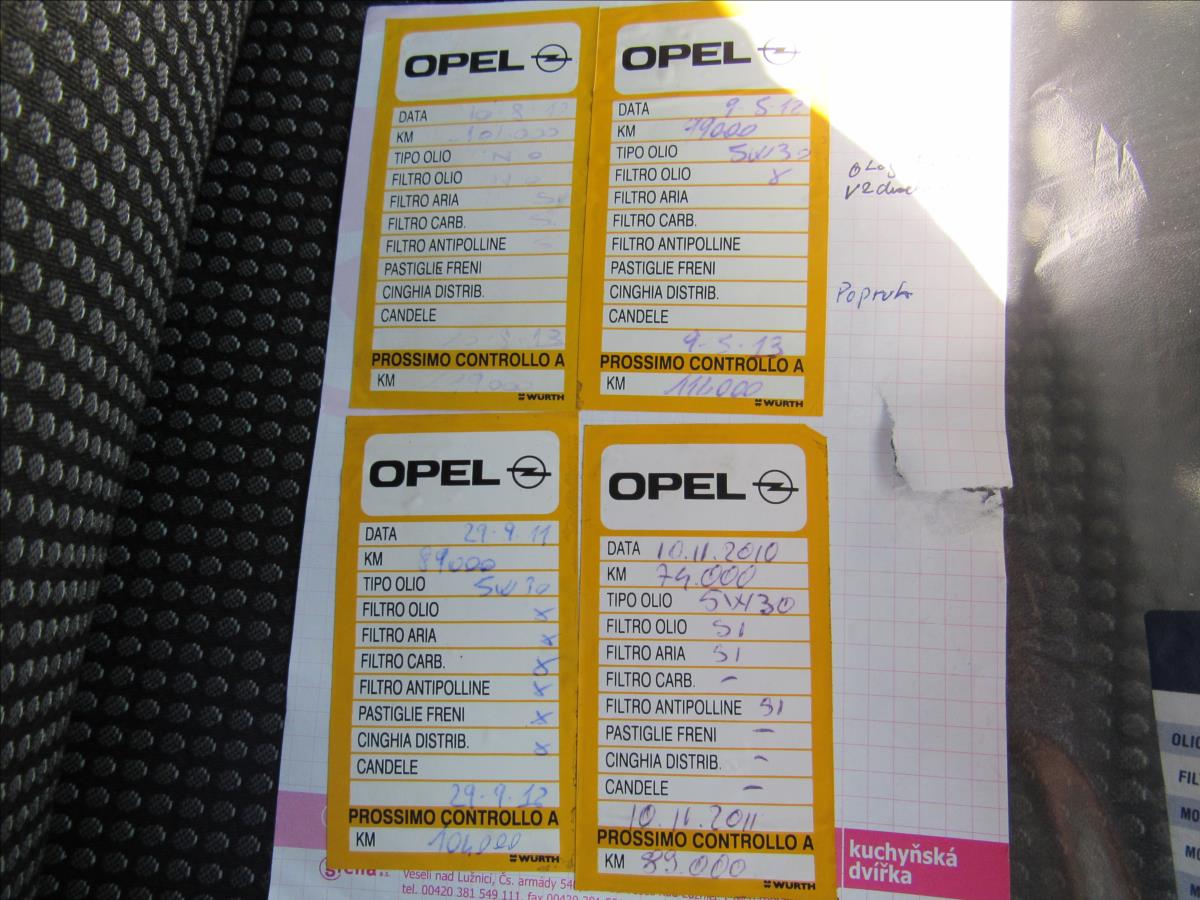 OPEL
DATA 10·8·12
KM 101.000
TIPO OLIO NO
FILTRO OLIO NO
FILTRO ARIA
FILTRO CARB.
FILTRO ANTIPOLLINE
PASTIGLIE FRENI
CINGHIA DISTRIB.
CANDELE
10·8·13
PROSSIMO CONTROLLO A
KM
WÜRTH
OPEL
DATA 9-5-12
KM 99000
TIPO OLIO 5W30
FILTRO OLIO x
FILTRO ARIA
FILTRO CARB.
FILTRO ANTIPOLLINE
PASTIGLIE FRENI
CINGHIA DISTRIB.
CANDELE
9-5-13
PROSSIMO CONTROLLO A
KM 114000
WÜRTH
OPEL
DATA 29·9·11
KM 89000
TIPO OLIO 5W30
FILTRO OLIO x
FILTRO ARIA x
FILTRO CARB. x
FILTRO ANTIPOLLINE x
PASTIGLIE FRENI x
CINGHIA DISTRIB. x
CANDELE
29·9·12
PROSSIMO CONTROLLO A
KM 104000
WÜRTH
OPEL
DATA 10.11.2010
KM 74.000
TIPO OLIO 5W30
FILTRO OLIO SI
FILTRO ARIA SI
FILTRO CARB. -
FILTRO ANTIPOLLINE SI
PASTIGLIE FRENI -
CINGHIA DISTRIB. -
CANDELE -
10.11.2011
PROSSIMO CONTROLLO A
KM 89.000
WÜRTH
kuchyňská
dvířka
Veselí nad Lužnicí, Čs. armády
tel. 00420 381 549 111, fax 00420
OLIO